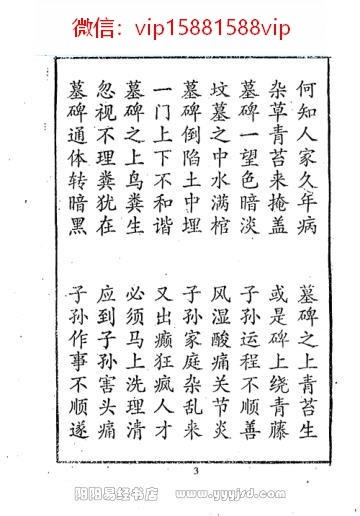 微信：vip15881588vip
何知人家久年病 墓碑之上青苔生
杂草青苔来掩盖 或是碑上绕青藤
墓碑一望色暗淡 子孙运程不顺善
坟墓之中水满棺 风湿酸痛关节炎
墓碑倒陷土中埋 子孙家庭杂乱来
一门上下不和谐 又出癫狂疯人才
墓碑之上鸟粪生 必须马上洗理清
忽视不理粪犹在 应到子孙害头痛
墓碑通体转暗黑 子孙作事不顺遂
3
阴阳易经书店 www.yyyjsd.com